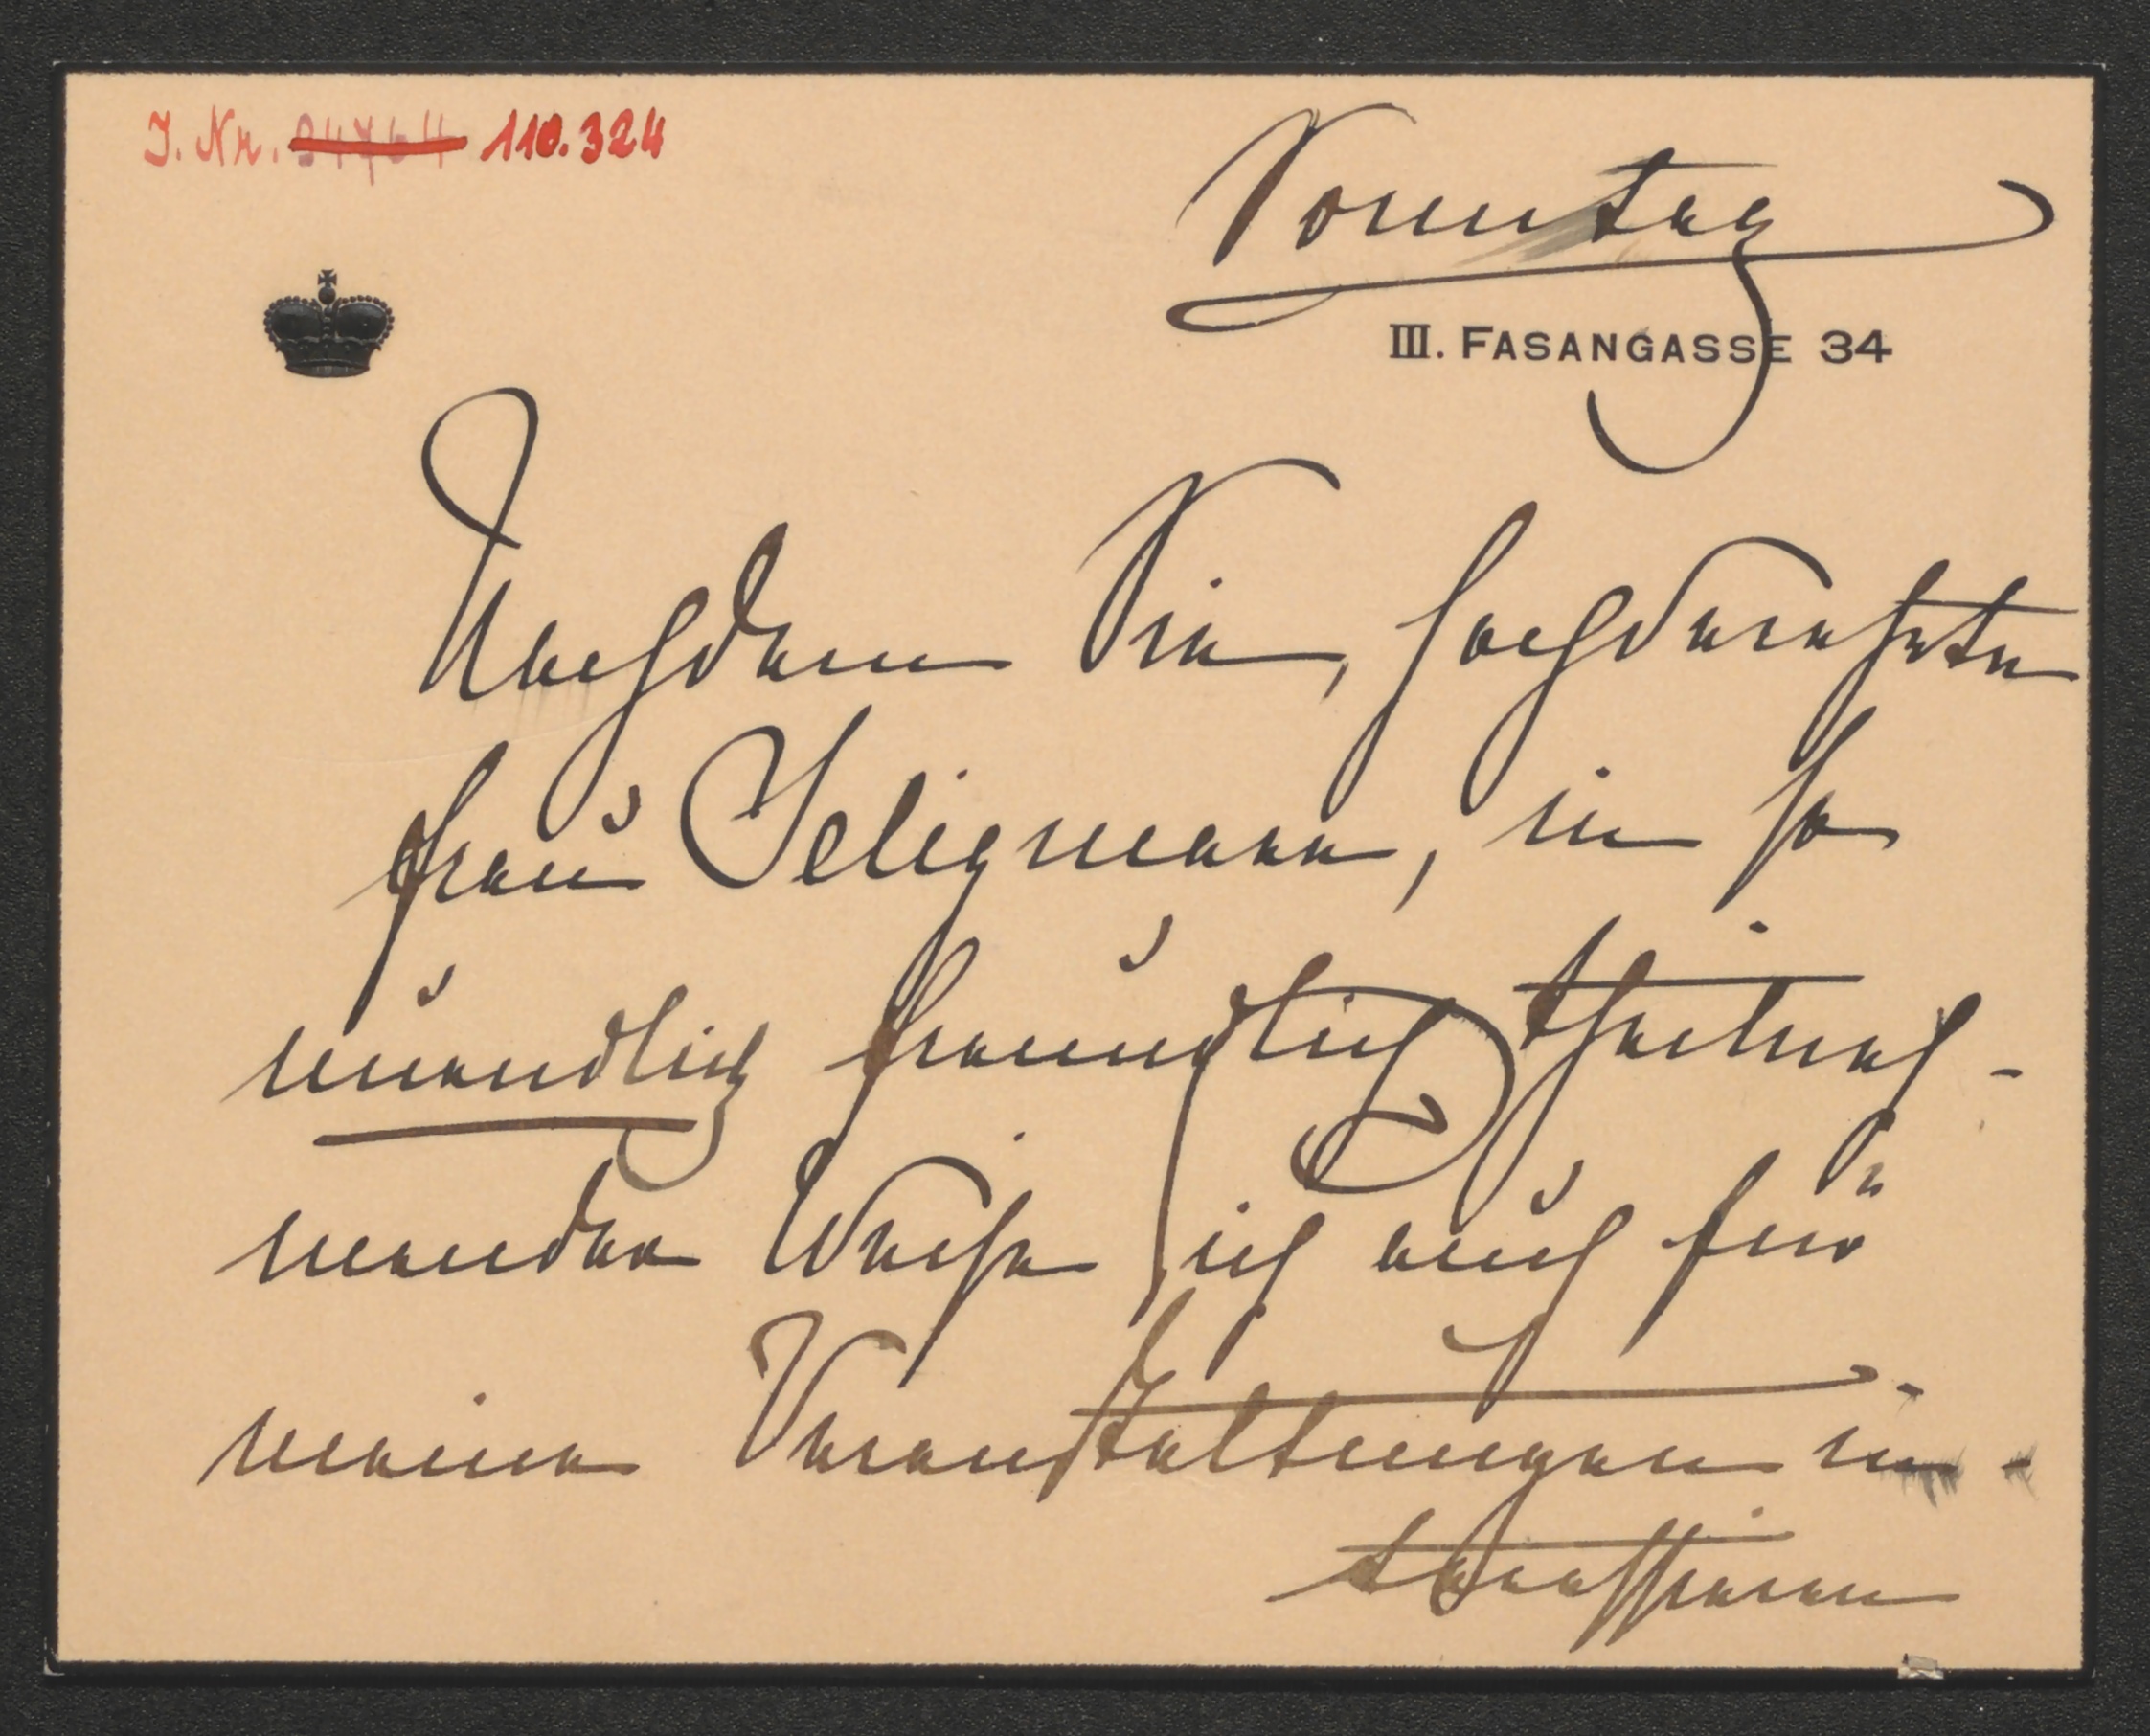 J. Nr. 110.324
Sonntag
III. FASANGASSE 34
Nachdem Sie, hochverehrte
Frau Seligmann, in so
unendlich freundlich theilneh-
mender Weise sich auch für
meine Veranstaltungen in-
teressieren